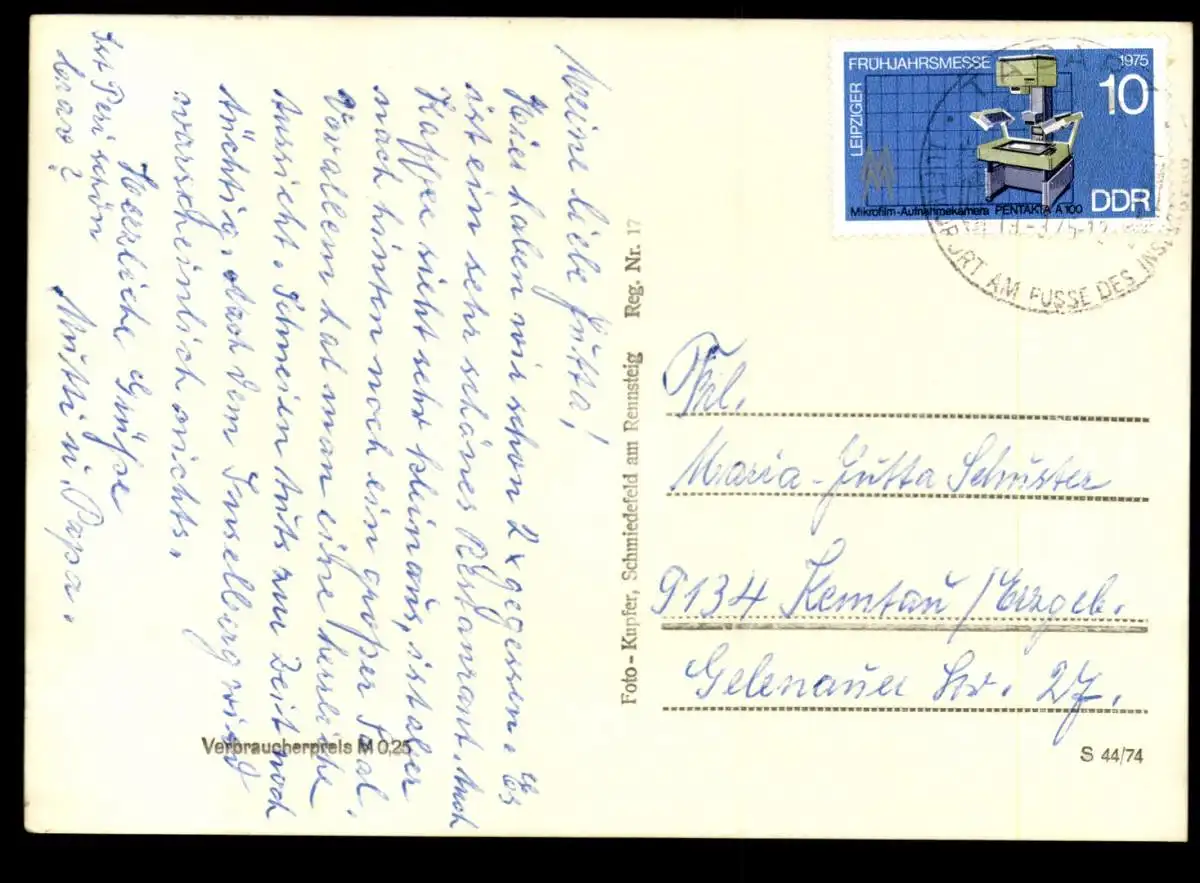 Meine liebe Jutta!
Hier haben wir schon 2 x gegessen. Es
ist ein sehr schönes Restaurant. Auch
Kaffee sieht sehr klein aus, ist aber
nach hinten noch ein großer Saal.
Vor allem hat man eine herrliche
Aussicht. Schneien tuts zur Zeit noch
tüchtig. Nach dem Inselberg wird
warscheinlich nichts.
Herzliche Grüße
Mutti u. Papa.
Ist Peri schön
brav?
Verbraucherpreis M 0,25
Foto-Kupfer, Schmiedefeld am Rennsteig Reg. Nr. 17
LEIPZIGER
FRÜHJAHRSMESSE
1975
10
Mikrofilm-Aufnahmekamera PENTAKTA A 100
DDR
TABA
19.-3.75-12
ORT AM FUSSE DES INSELSBERG
Frl.
Maria-Jutta Schuster
9134 Kemtau / Erzgeb.
Gelenauer Str. 27.
S 44/74